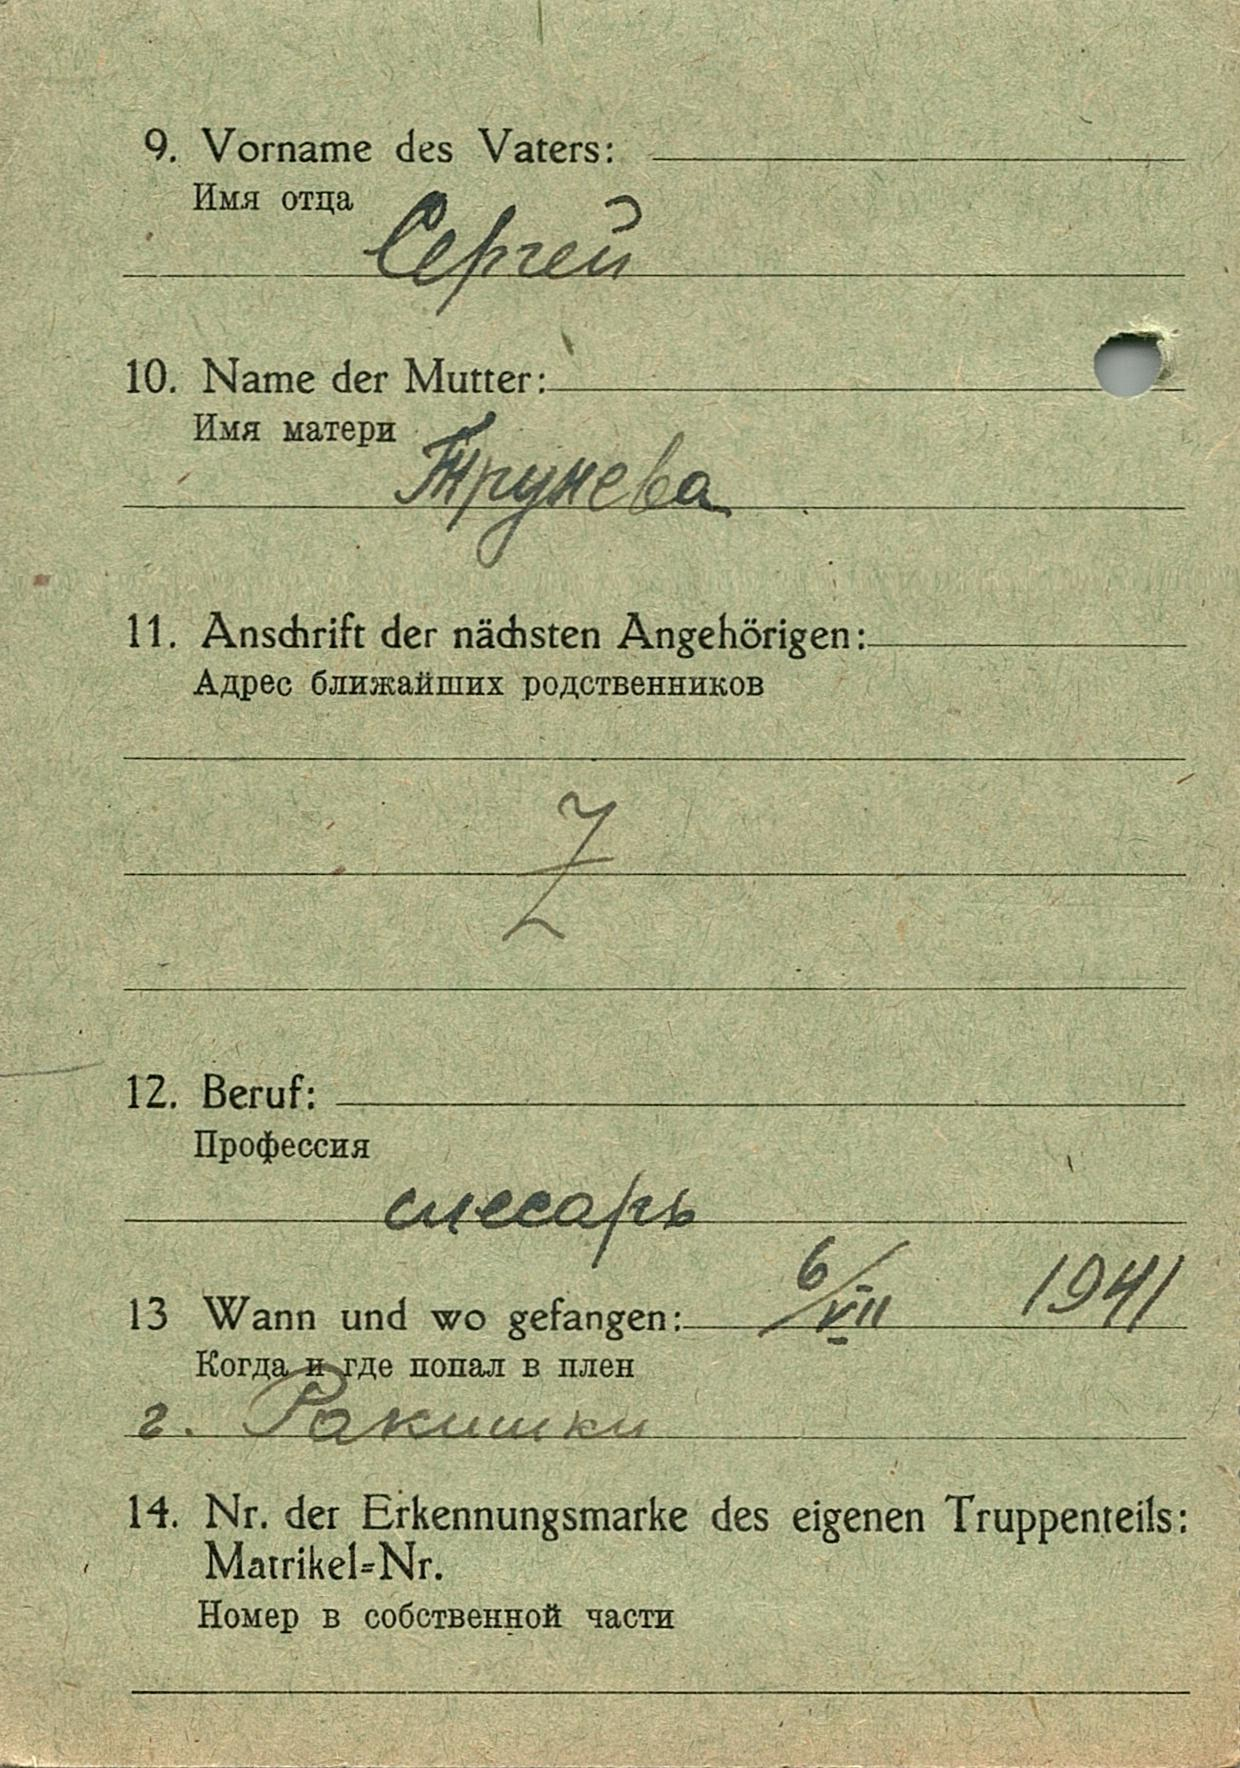 9. Vorname des Vaters:
Имя отца
Сергей
10. Name der Mutter:
Имя матери
Трунева
11. Anschrift der nächsten Angehörigen:
Адрес ближайших родственников
Z
12. Beruf:
Профессия
слесарь
13 Wann und wo gefangen: 6/VII 1941
Когда и где попал в плен
г. Ракишки
14. Nr. der Erkennungsmarke des eigenen Truppenteils:
Matrikel=Nr.
Номер в собственной части